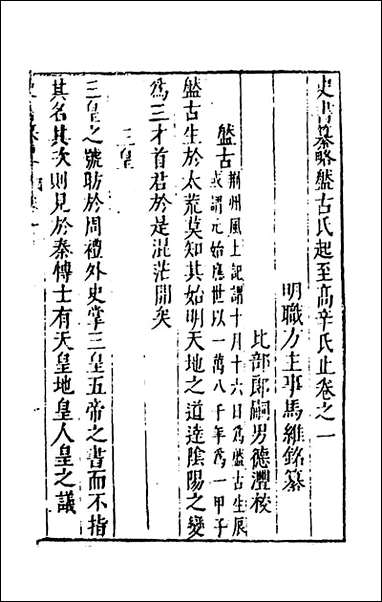 史書纂略盤古氏起至高辛氏止卷之一
明職方主事馬維銘纂
比部郎嗣男德灃校
盤古
荆州風土記謂十月十六日爲盤古生辰
或謂元始應世以一萬八千年爲一甲子
盤古生於太荒莫知其始明天地之道達陰陽之變
爲三才首君於是混茫開矣
三皇
三皇之號昉於周禮外史掌三皇五帝之書而不指
其名其次則見於秦博士有天皇地皇人皇之議